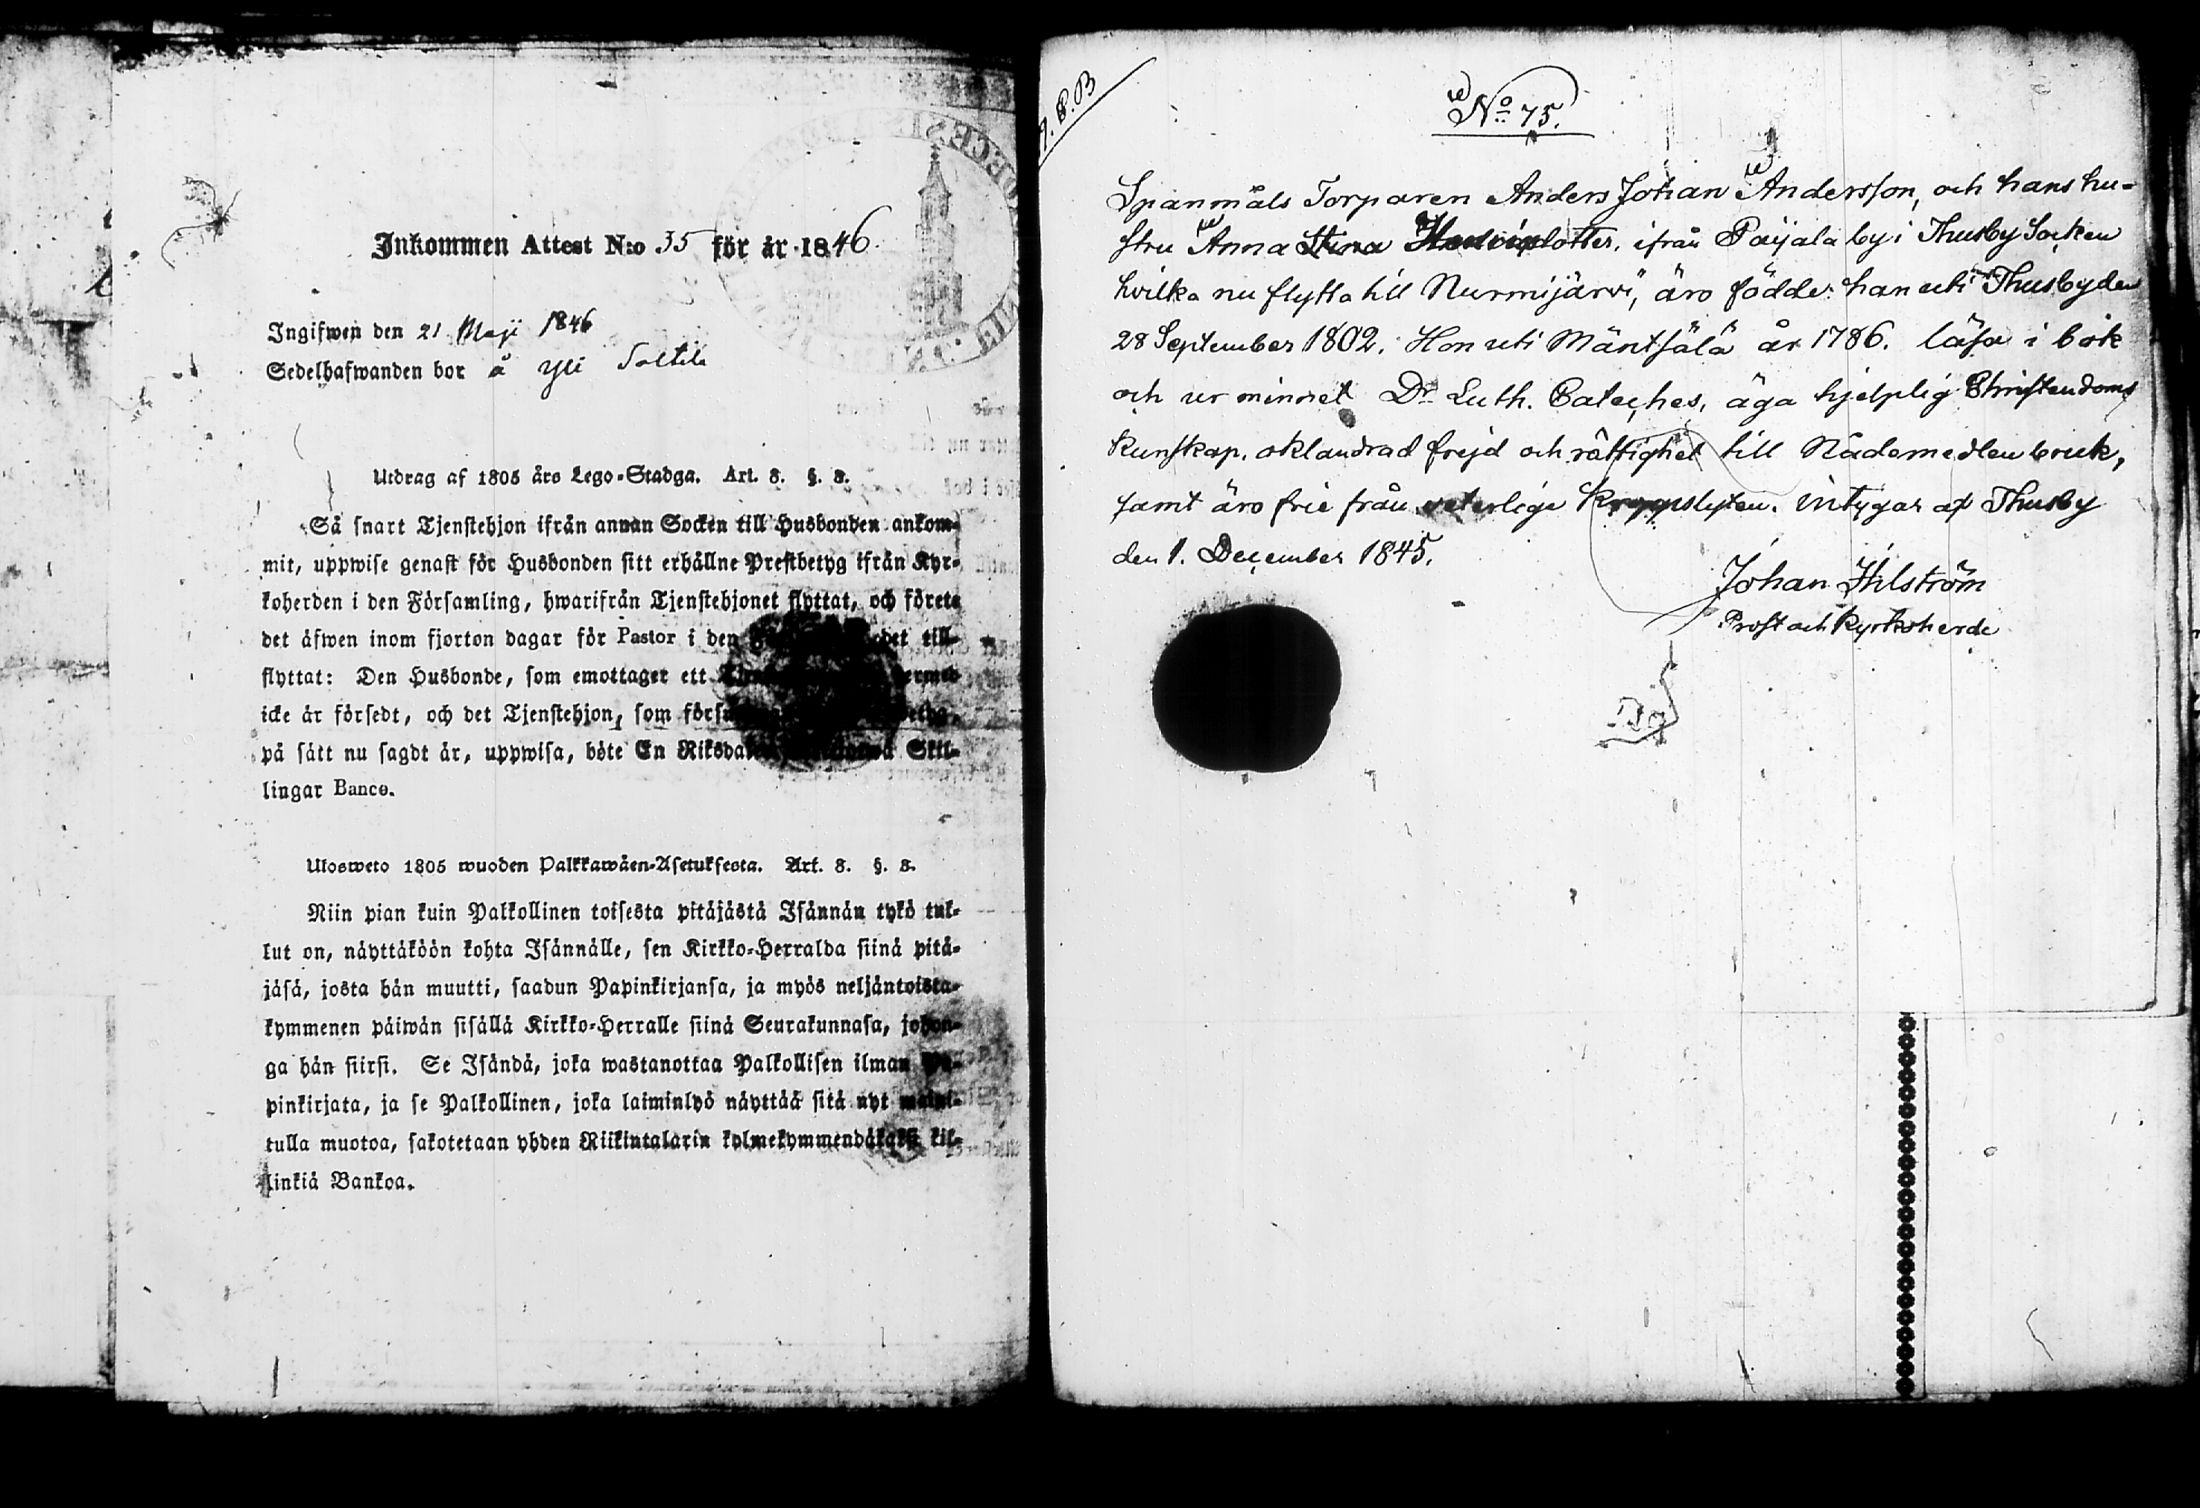 Inkommen Attest N:o 35 för år 1846.
Ingifwen den 21 Maji 1846
Sedelhafwanden bor å Yli Solttila
Utdrag af 1805 års Lego-Stadga. Art. 8. §. 3.
Så snart Tjenstehjon ifrån annan Socken till Husbonden ankom-
mit, uppwise genast för Husbonden sitt erhållne Prestbetyg ifrån Kyr-
koherden i den Församling, hwarifrån Tjenstehjonet flyttat, och förete
det äfwen inom fjorton dagar för Pastor i den till-
flyttat: Den Husbonde, som emottager ett
icke är försedt, och det Tjenstehjon, som
på sätt nu sagdt är, uppwisa, böte En Skil-
lingar Banco.
Ulosweto 1805 wuoden Palkkawäen-Asetuksesta. Art. 8. §. 3.
Niin pian kuin Palkollinen toisesta pitäjästä Isännän tykö tul-
lut on, näyttäköön kohta Isännälle, sen Kirkko-Herralda siinä pitä-
jäsä, josta hän muutti, saadun Papinkirjansa, ja myös neljäntoista-
kymmenen päiwän sisällä Kirkko-Herralle siinä Seurakunnasa, johon-
ga hän siirsi. Se Isändä, joka wastanottaa Palkollisen ilman Pa-
pinkirjata, ja se Palkollinen, joka laiminlyö näyttää sitä nyt maini-
tulla muotoa, sakotetaan yhden Riikintalarin kolmekymmendäkaksi kil-
linkiä Bankoa.
No 75.
Spanmåls Torparen Anders Johan Andersson, och hans hu-
stru Anna Stina ifrån Paijala by i Thusby Socken
hvilka nu flytta till Nurmijärvi, äro födde: han uti Thusby den
28 September 1802. Hon uti Mäntsälä år 1786. läsa i bok
och ur minnet Dr Luth. Cateches, äga hjelplig Christendoms
kunskap, oklandrad frejd och rättighet till Nådemedlen bruk,
samt äro frie från veterlige kroppslyten. intygar af Thusby
den 1. December 1845.
Johan
Prost och Kyrkoherde